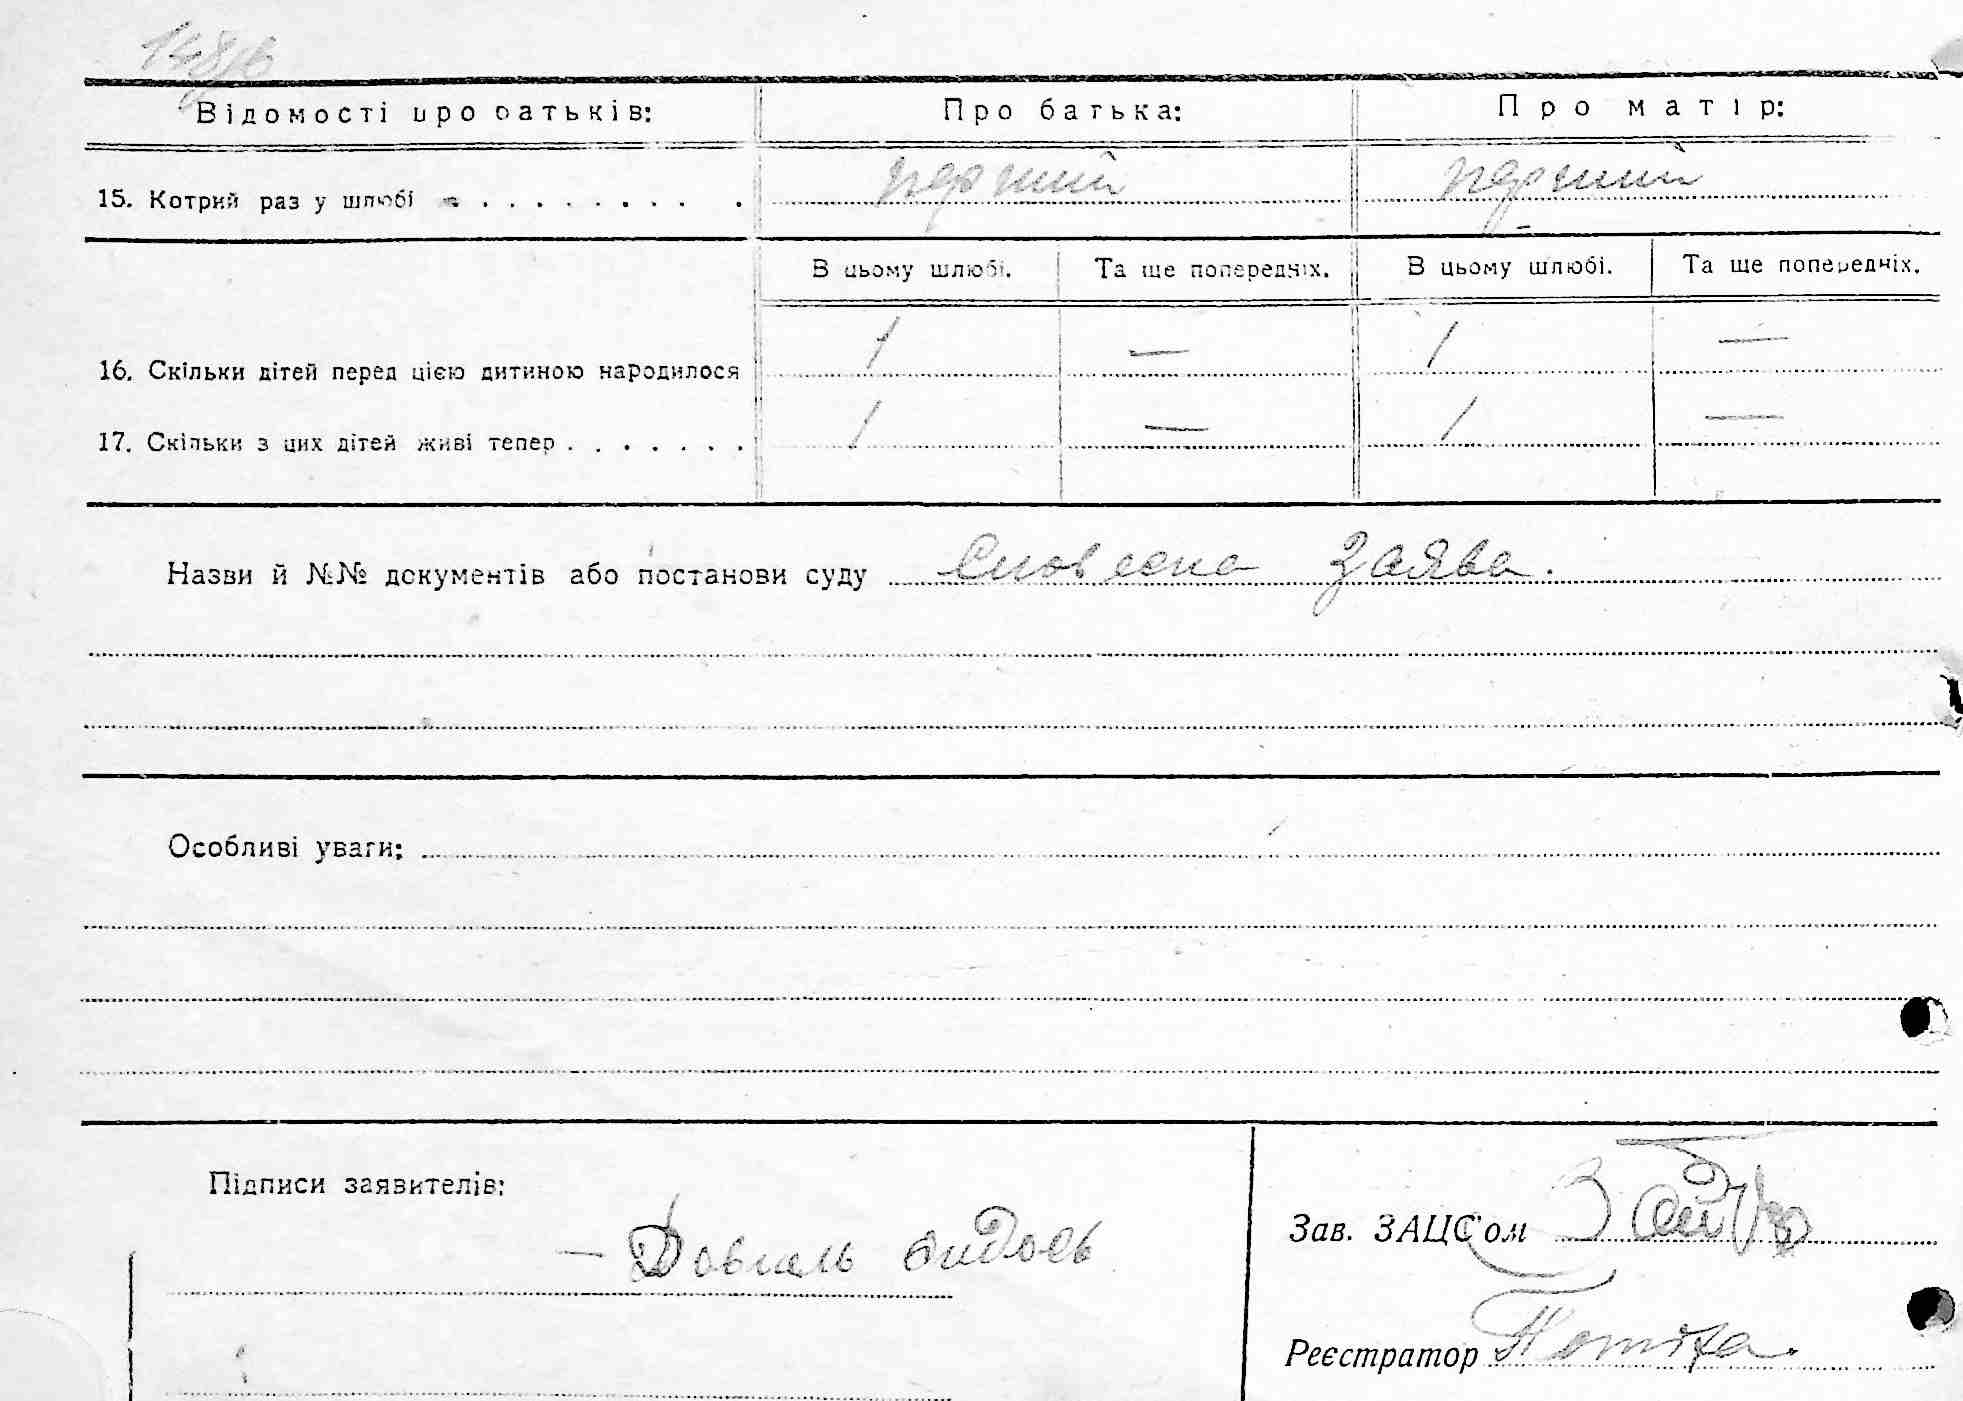 Відомості про батьків: Про батька: Про матір:
15. Котрий раз у шлюбі . . . . . . . . . . перший перший
В цьому шлюбі. Та ще попередніх. В цьому шлюбі. Та ще попередніх.
16. Скільки дітей перед цією дитиною народилося 1 — 1 —
17. Скільки з цих дітей живі тепер . . . . . . . 1 — 1 —
Назви й №№ документів або постанови суду Словесна заява.
Особливі уваги:
Підписи заявителів:
Зав. ЗАЦС'ом
— Довгаль
Реєстратор